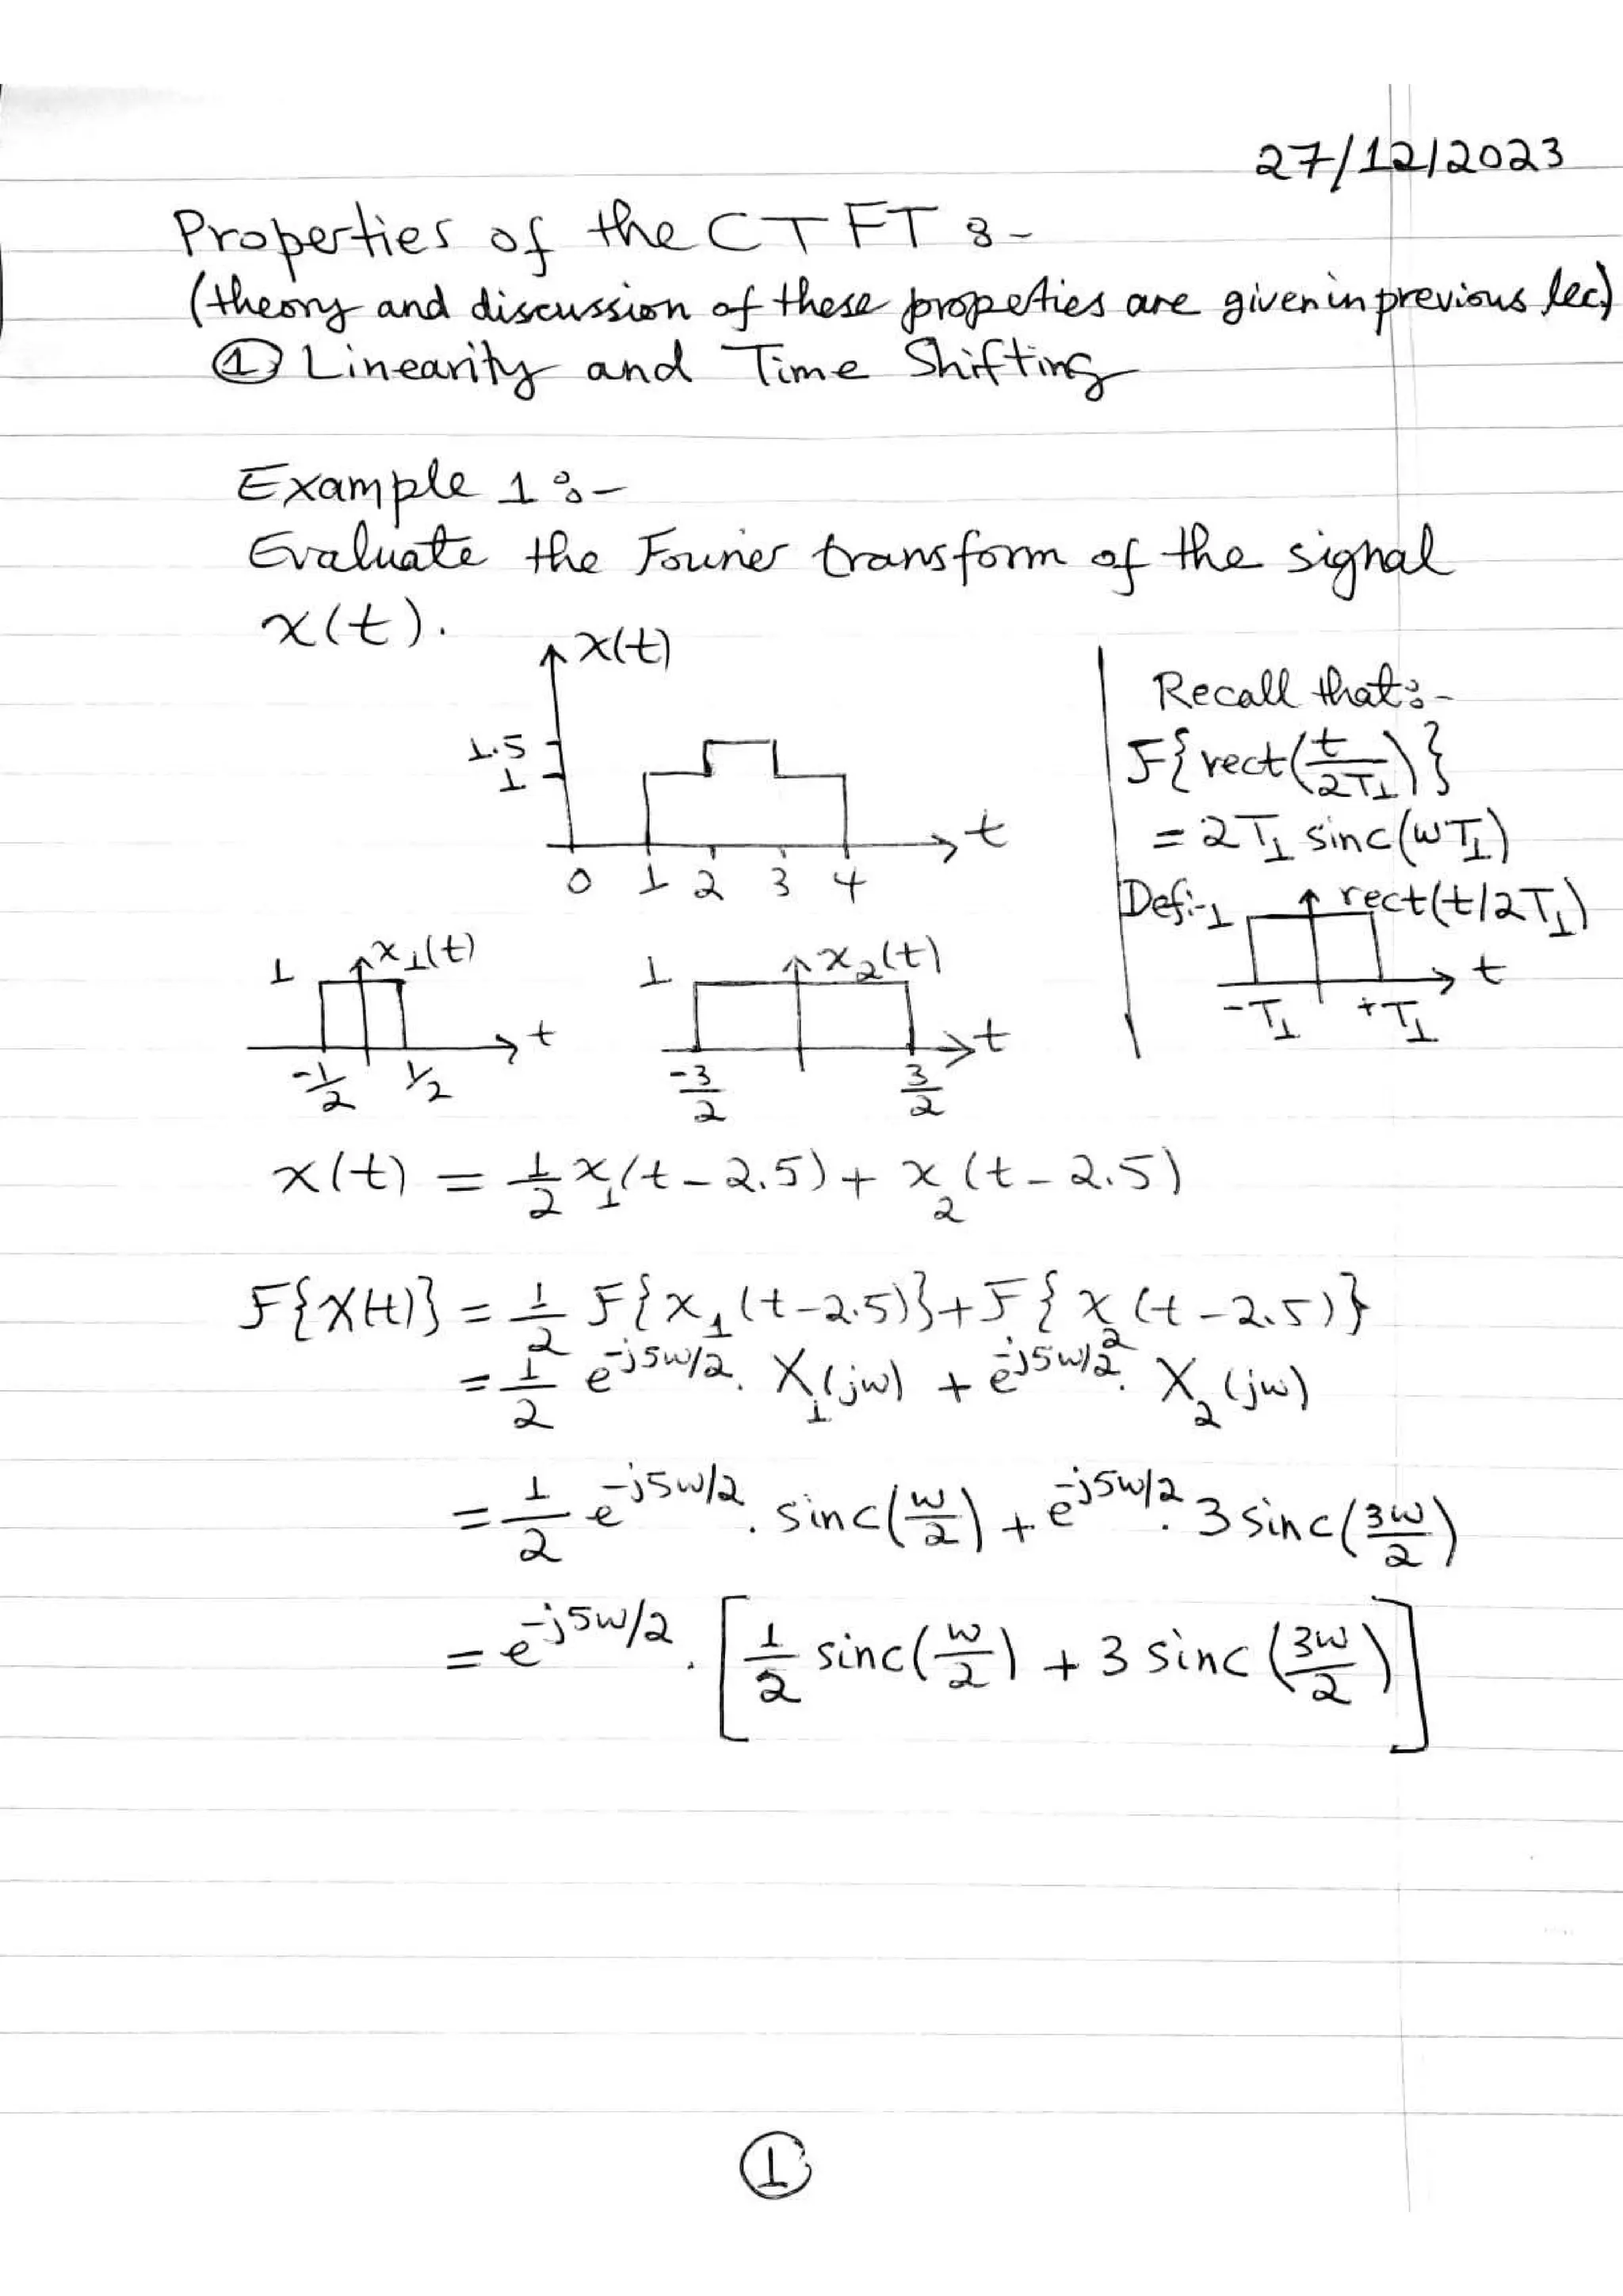 27/12/2023
Properties of the CTFT :-
(theory and discussion of these propeties are given in previous lec)
① Linearity and Time Shifting
Example 1:-
Evaluate the Fourier transform of the signal
x(t).
x(t)
1.5
1
0 1 2 3 4
t
Recall that:-
F{rect(t/2T₁)}
= 2T₁ sinc(ωT₁)
Def:- 1 rect(t/2T₁)
t
-T₁ +T₁
1 x₁(t)
t
-1/2 1/2
1 x₂(t)
t
-3/2 3/2
x(t) = 1/2 x₁(t-2.5) + x₂(t-2.5)
F{X(t)} = 1/2 F{x₁(t-2.5)} + F{x₂(t-2.5)}
= 1/2 e^(-j5ω/2) . X₁(jω) + e^(-j5ω/2) . X₂(jω)
= 1/2 e^(-j5ω/2) . sinc(ω/2) + e^(-j5ω/2) . 3 sinc(3ω/2)
= e^(-j5ω/2) . [1/2 sinc(ω/2) + 3 sinc(3ω/2)]
①